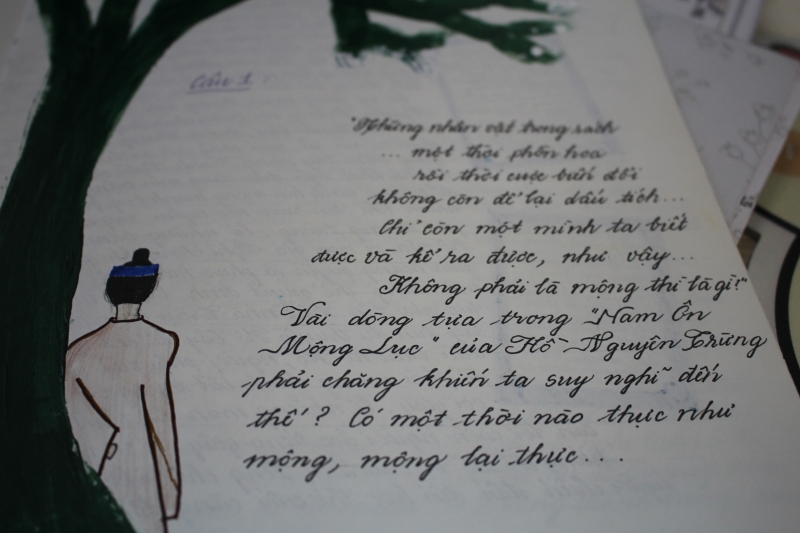 Câu 1:
"Những nhân vật trong sách
... một thời phồn hoa
rồi thời cuộc biến đổi
không còn để lại dấu tích...
Chỉ còn một mình ta biết
được và kể ra được, như vậy...
Không phải là mộng thì là gì!"
Vài dòng tựa trong "Nam Ôn
Mộng Lục" của Hồ Nguyên Trừng
phải chăng khiến ta suy nghĩ đến
thế? Có một thời nào thực như
mộng, mộng lại thực...